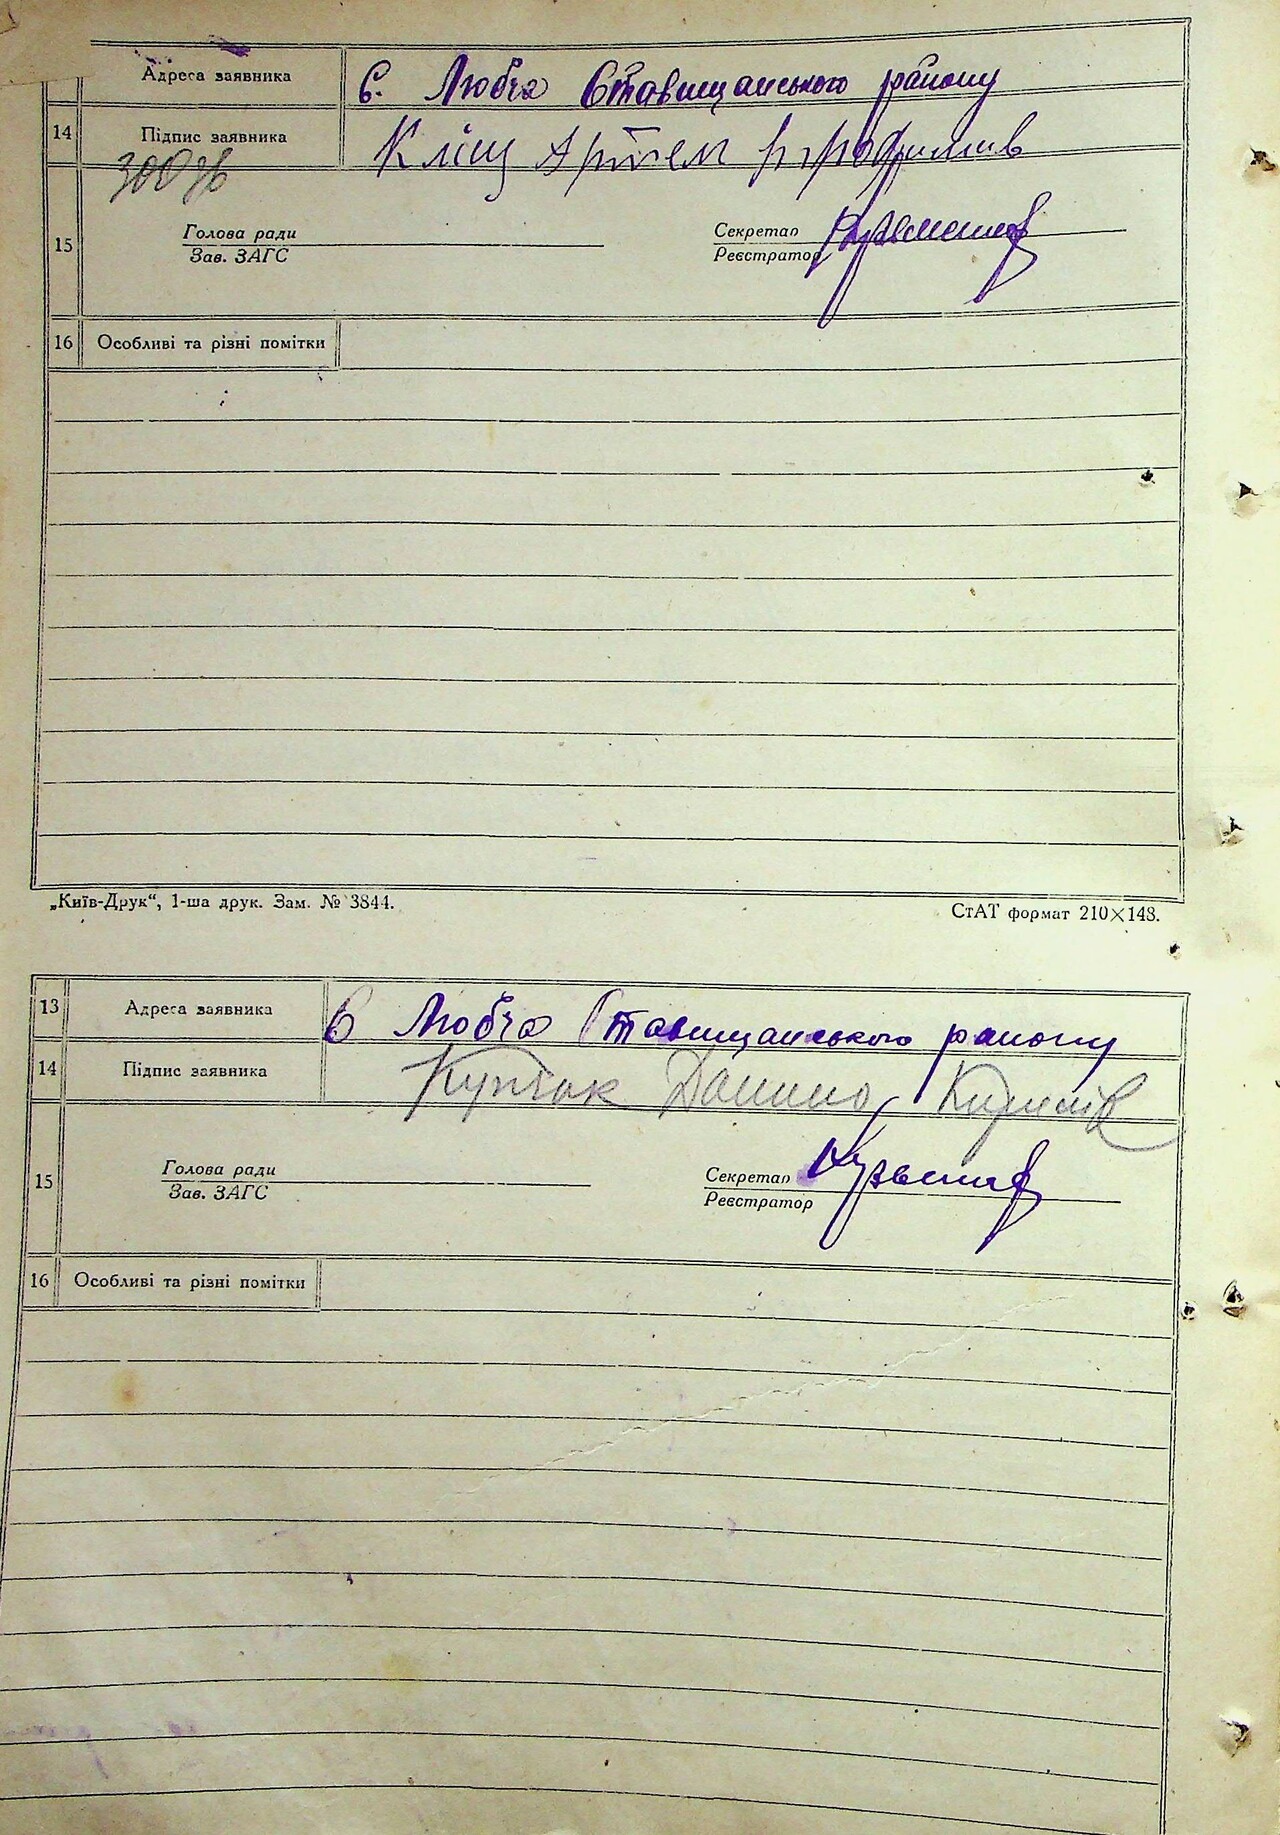 Адреса заявника С. Любча Ставищанського району
14 Підпис заявника Кліщ Артем
15 Голова ради Секретар
Зав. ЗАГС Реєстратор
16 Особливі та різні помітки
„Київ-Друк“, 1-ша друк. Зам. № 3844.
СтАТ формат 210×148.
13 Адреса заявника С Любча Ставищанського району
14 Підпис заявника Данило Кирилів
15 Голова ради Секретар
Зав. ЗАГС Реєстратор
16 Особливі та різні помітки